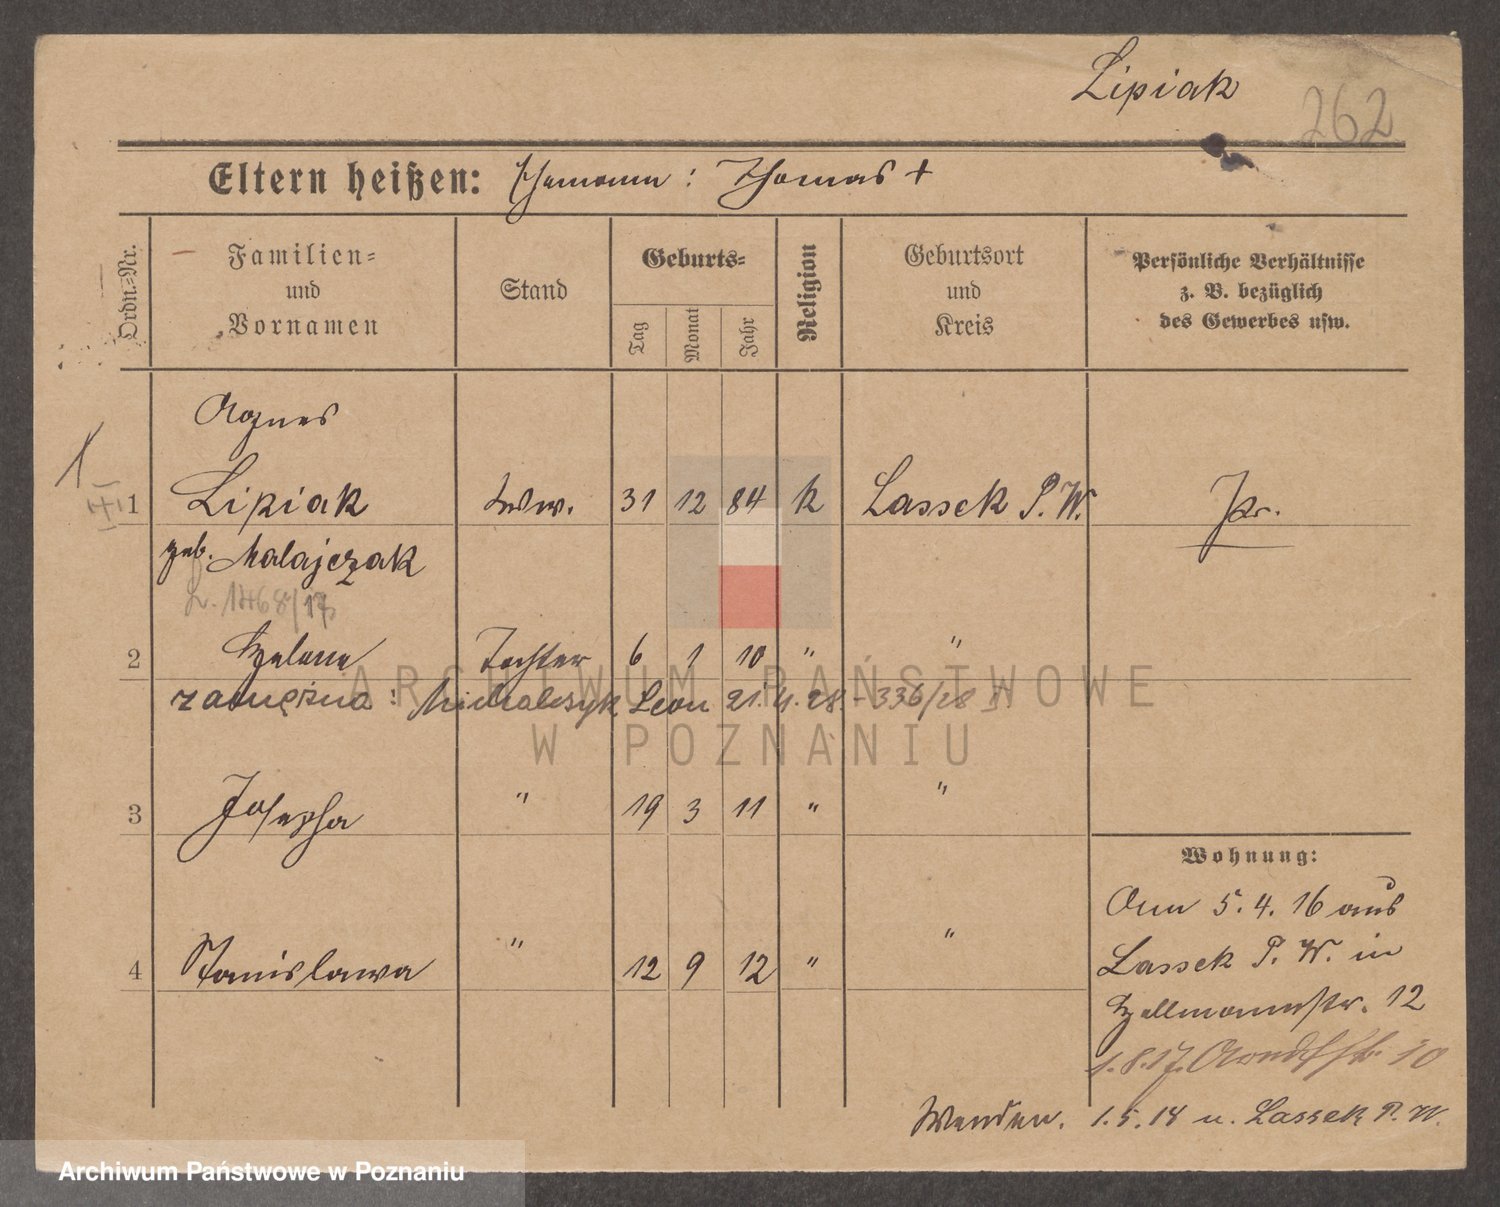 Lipiak
262
Eltern heißen: Ehemann: Thomas +
Ordn.=Nr.
Familien=
und
Vornamen
Stand
Geburts=
Tag
Monat
Jahr
Religion
Geburtsort
und
Kreis
Persönliche Verhältnisse
z. B. bezüglich
des Gewerbes usw.
Agnes
1 Lipiak Ww. 31 12 84 k Lassek P. W.
geb. Malajczak
1468/17
2 Helene Tochter 6 1 10 " "
zamężna: Michalczyk Leon 21.4.28 - 336/28
3 Josepha " 19 3 11 " "
4 Stanislawa " 12 9 12 " "
Wohnung:
Am 5. 4. 16 aus
Lassek P. W. in
Hellmannstr. 12
1.8.17. Arndtstr. 10
Wenden. 1.5.18 n. Lassek P. W.
ARCHIWUM PAŃSTWOWE
W POZNANIU
Archiwum Państwowe w Poznaniu